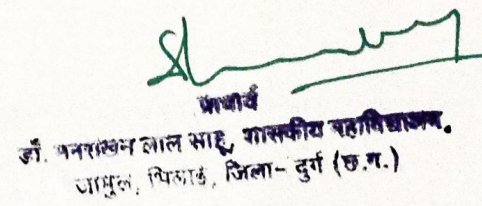 प्राचार्य
डॉ. मनराखन लाल साहू, शासकीय महाविद्यालय,
जामुल, भिलाई, जिला- दुर्ग (छ.ग.)